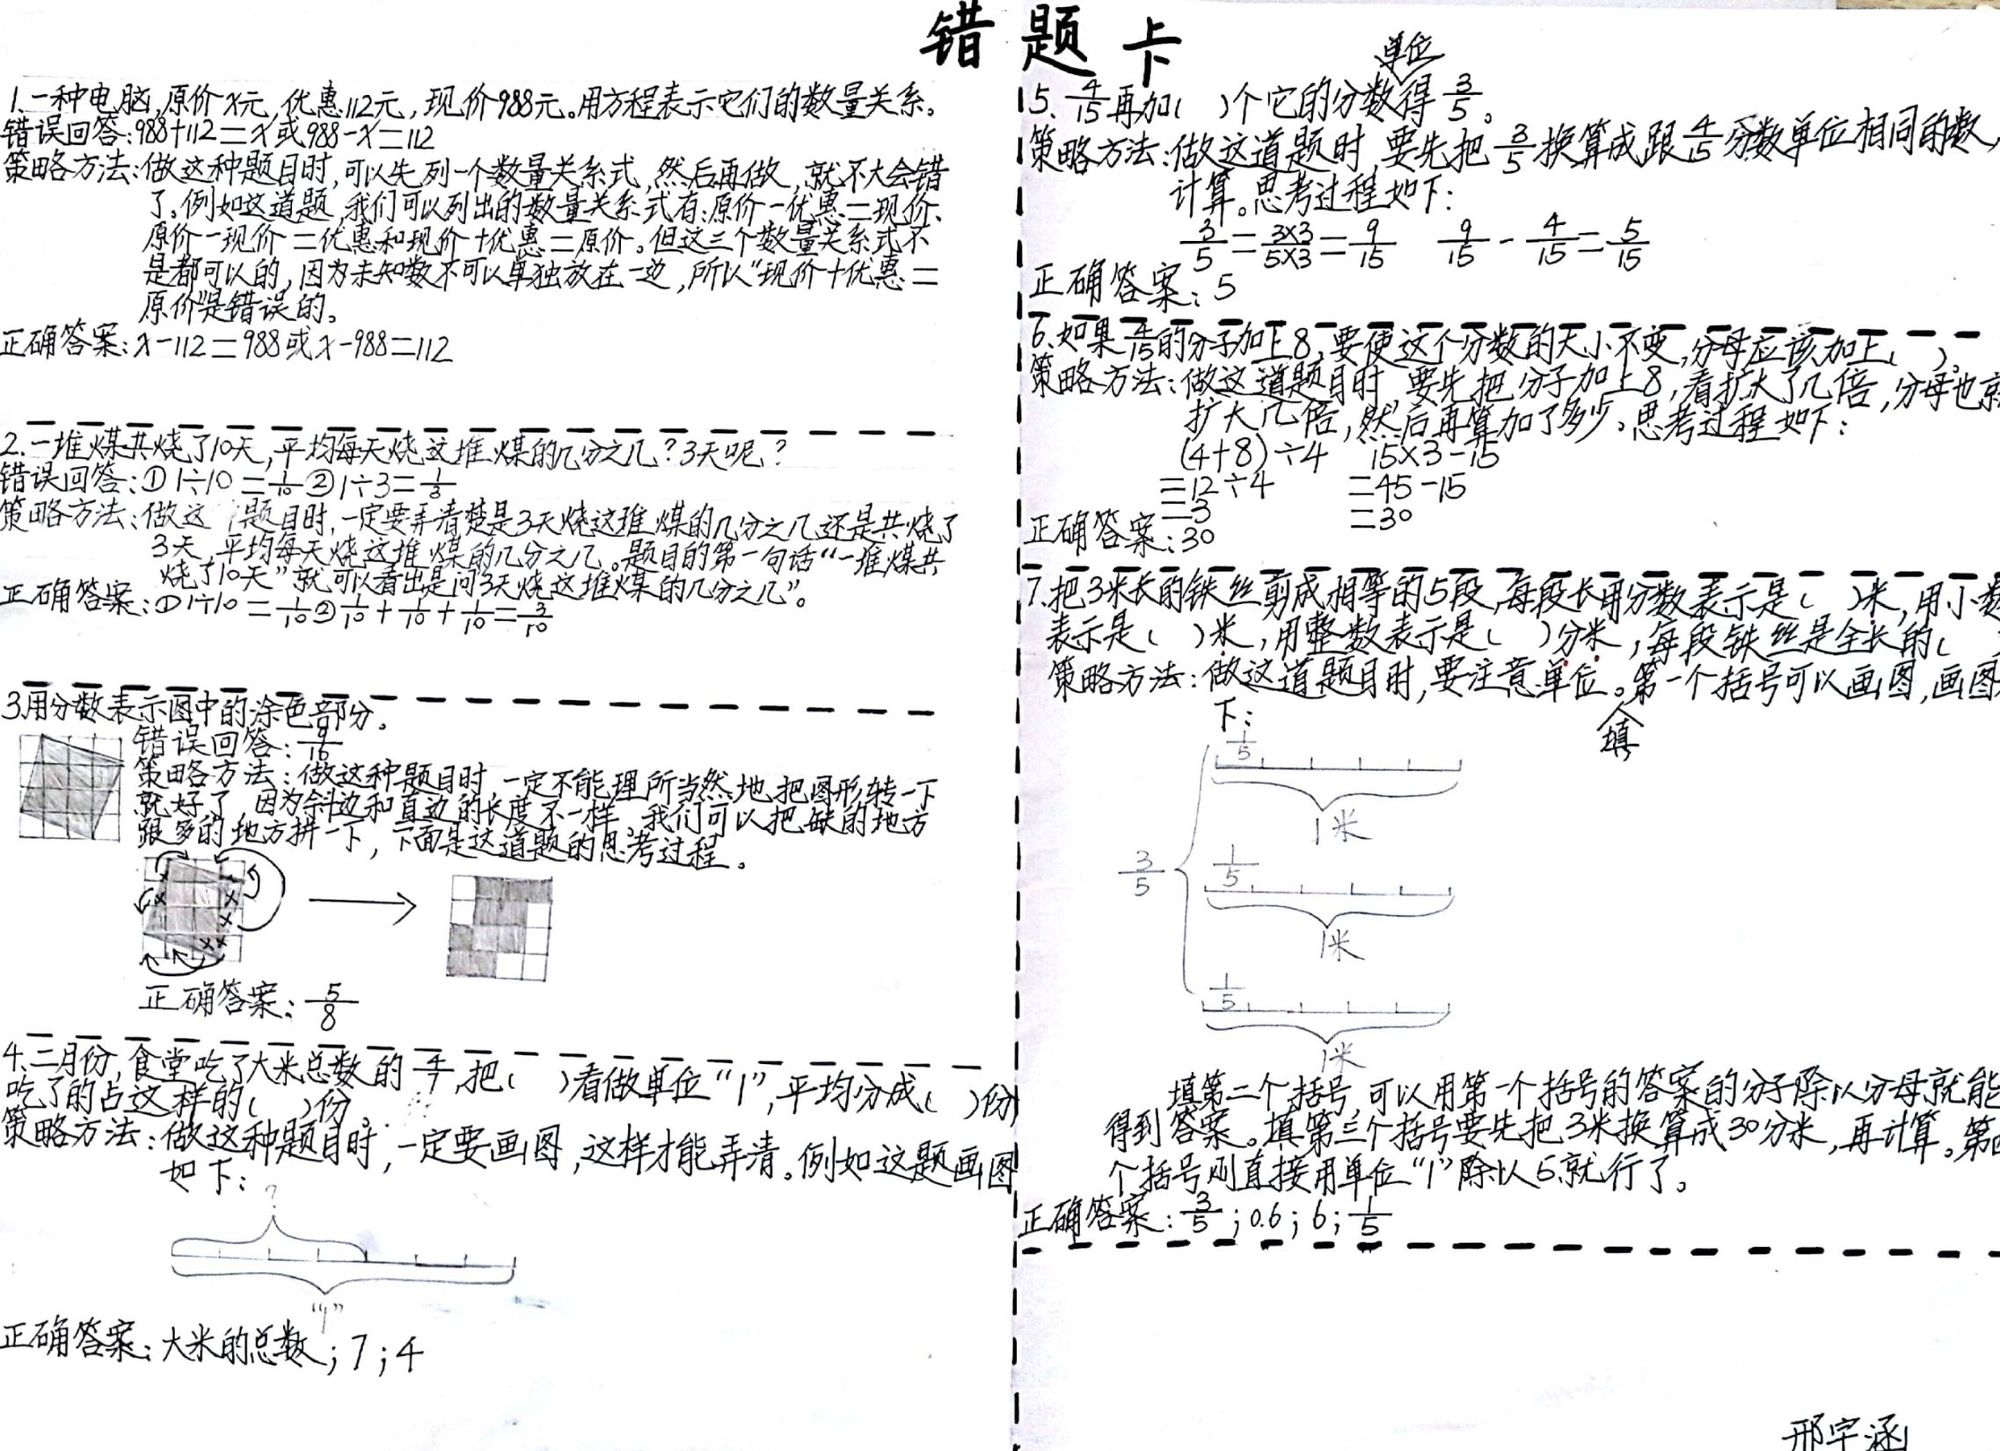 错题卡
1.一种电脑,原价x元,优惠112元,现价988元。用方程表示它们的数量关系。
错误回答:988+112=x或988-x=112
策略方法:做这种题目时,可以先列一个数量关系式,然后再做,就不大会错
了。例如这道题,我们可以列出的数量关系式有:原价-优惠=现价、
原价-现价=优惠和现价+优惠=原价。但这三个数量关系式不
是都可以的,因为未知数不可以单独放在一边,所以“现价+优惠=
原价”是错误的。
正确答案:x-112=988或x-988=112
2.一堆煤共烧了10天,平均每天烧这堆煤的几分之几?3天呢?
错误回答:①1÷10=1/10②1÷3=1/3
策略方法:做这 题目时,一定要弄清楚是3天烧这堆煤的几分之几还是共烧了
3天,平均每天烧这堆煤的几分之几。题目的第一句话“一堆煤共
烧了10天”就可以看出是问3天烧这堆煤的几分之几”。
正确答案:①1÷10=1/10②1/10+1/10+1/10=3/10
3.用分数表示图中的涂色部分。
错误回答:9/16
策略方法:做这种题目时,一定不能理所当然地把图形转一下
就好了,因为斜边和直边的长度不一样,我们可以把缺的地方
跟多的地方拼一下,下面是这道题的思考过程。
正确答案:5/8
4.二月份,食堂吃了大米总数的4/7,把( )看做单位“1”,平均分成( )份
吃了的占这样的( )份。
策略方法:做这种题目时,一定要画图,这样才能弄清。例如这题画图
如下:
?
“1”
正确答案:大米的总数;7;4
单位
5.4/15再加( )个它的分数得3/5。
策略方法:做这道题时,要先把3/5换算成跟4/15分数单位相同的数,
计算。思考过程如下:
3/5=3×3/5×3=9/15 9/15-4/15=5/15
正确答案:5
6.如果4/15的分子加上8,要使这个分数的大小不变,分母应该加上( )。
策略方法:做这道题目时,要先把分子加上8,看扩大了几倍,分母也就
扩大几倍,然后再算加了多少。思考过程如下:
(4+8)÷4 15×3-15
=12÷4 =45-15
=3 =30
正确答案:30
7.把3米长的铁丝剪成相等的5段,每段长用分数表示是( )米,用小数
表示是( )米,用整数表示是( )分米,每段铁丝是全长的( )
策略方法:做这道题目时,要注意单位。第一个括号可以画图,画图
填
下:
1/5
1米
3/5
1/5
1米
1/5
1米
填第二个括号,可以用第一个括号的答案的分子除以分母就能
得到答案。填第三个括号要先把3米换算成30分米,再计算。第四
个括号则直接用单位“1”除以5就行了。
正确答案:3/5;0.6;6;1/5
邢宇涵